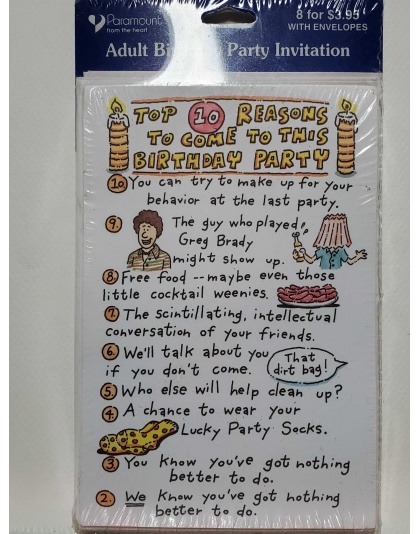 Paramount
from the heart
8 for $3.95
WITH ENVELOPES
Adult Birthday Party Invitation
TOP 10 REASONS
TO COME TO THIS
BIRTHDAY PARTY
10. You can try to make up for your
behavior at the last party.
9. The guy who played
Greg Brady
might show up.
8 Free food -- maybe even those
little cocktail weenies.
7. The scintillating, intellectual
conversation of your friends.
6. We'll talk about you
if you don't come.
That
dirt bag!
5. Who else will help clean up?
4. A chance to wear your
Lucky Party Socks.
3 You know you've got nothing
better to do.
2. We know you've got nothing
better to do.